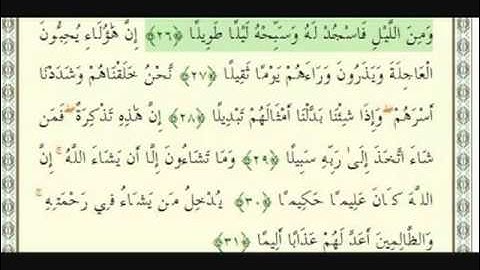 وَمِنَ اللَّيْلِ فَاسْجُدْ لَهُ وَسَبِّحْهُ لَيْلًا طَوِيلًا ﴿٢٦﴾ إِنَّ هَٰؤُلَاءِ يُحِبُّونَ
الْعَاجِلَةَ وَيَذَرُونَ وَرَاءَهُمْ يَوْمًا ثَقِيلًا ﴿٢٧﴾ نَّحْنُ خَلَقْنَاهُمْ وَشَدَدْنَا
أَسْرَهُمْ ۖ وَإِذَا شِئْنَا بَدَّلْنَا أَمْثَالَهُمْ تَبْدِيلًا ﴿٢٨﴾ إِنَّ هَٰذِهِ تَذْكِرَةٌ ۖ فَمَن
شَاءَ اتَّخَذَ إِلَىٰ رَبِّهِ سَبِيلًا ﴿٢٩﴾ وَمَا تَشَاءُونَ إِلَّا أَن يَشَاءَ اللَّهُ ۚ إِنَّ
اللَّهَ كَانَ عَلِيمًا حَكِيمًا ﴿٣٠﴾ يُدْخِلُ مَن يَشَاءُ فِي رَحْمَتِهِ ۚ
وَالظَّالِمِينَ أَعَدَّ لَهُمْ عَذَابًا أَلِيمًا ﴿٣١﴾